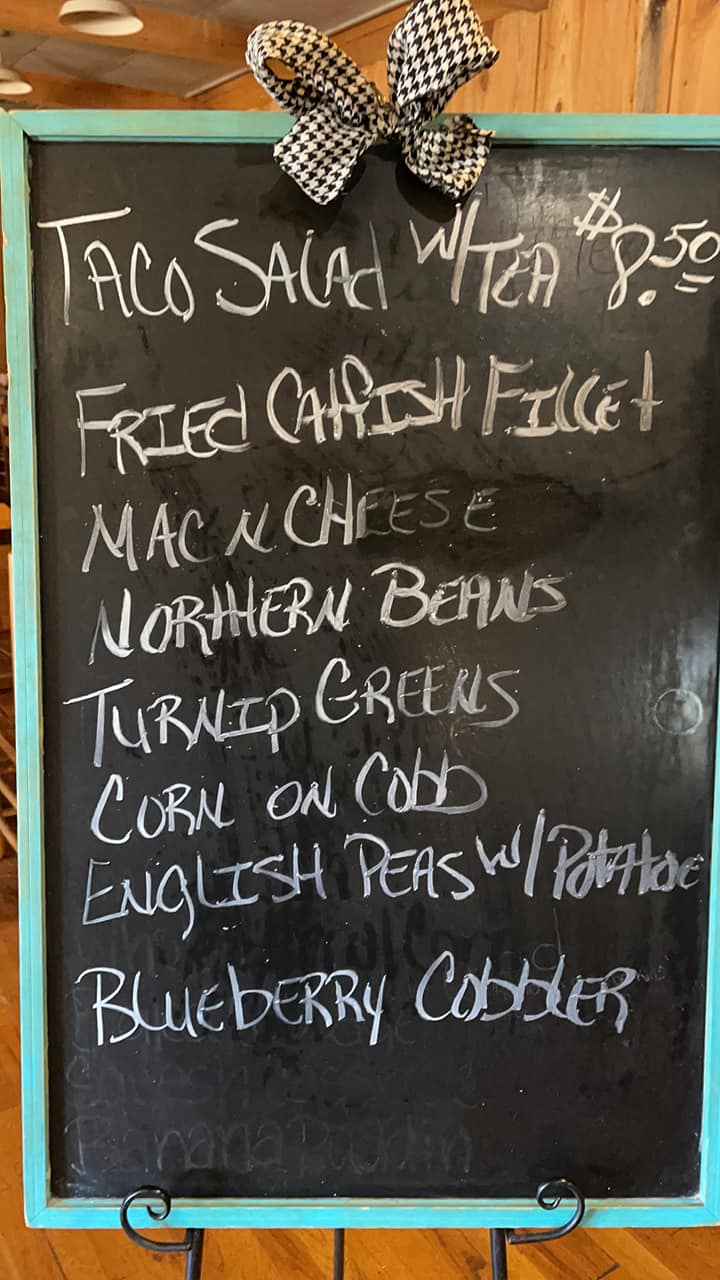 TACO SALAd W/TEA $8.50
FRIEd CATFISH FILLEt
MAC N CHEESE
NORTHERN BEANS
TURNIP GREENS
CORN ON CObb
ENGLISH PEAS W/POtAtOE
BLUEbERRY CObbLER
Banana Puddin